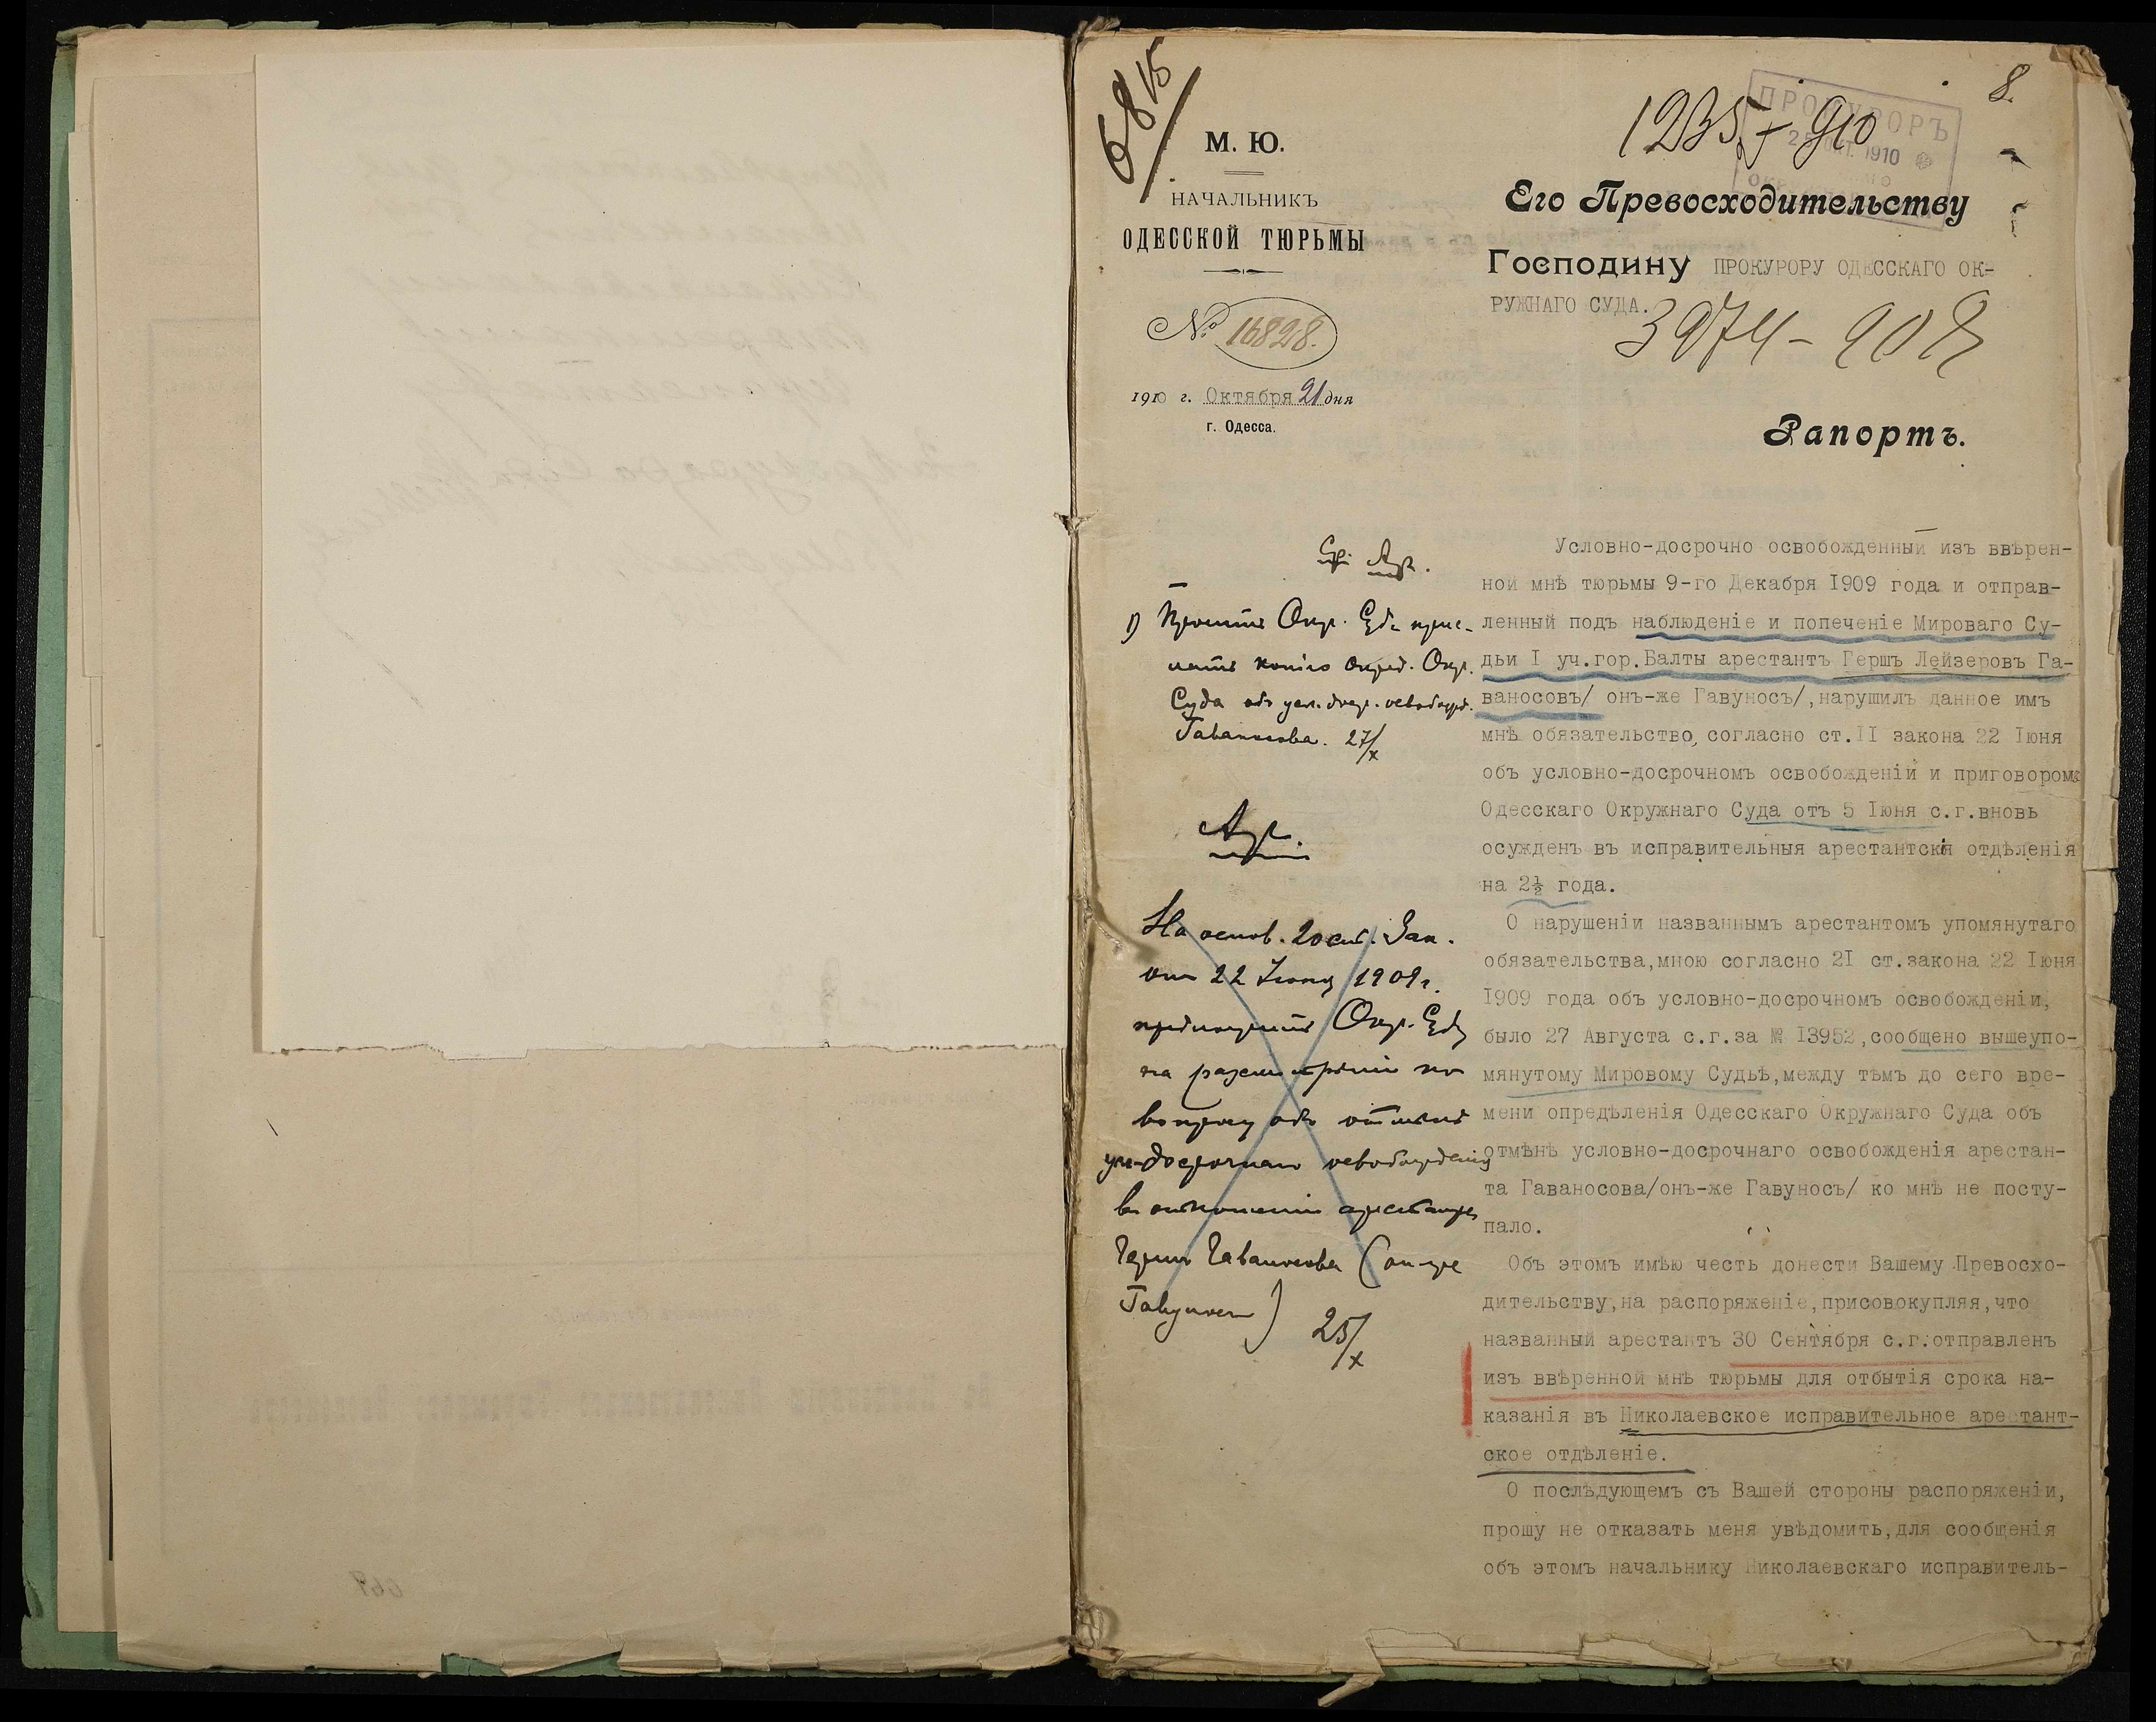 6815
М. Ю.
НАЧАЛЬНИКЪ
ОДЕССКОЙ ТЮРЬМЫ
№ 16828.
1910 г. Октября 21 дня
г. Одесса.
8.
ПРОКУРОРЪ
ОКТ. 1910
1235 - 910
Его Превосходительству
Господину ПРОКУРОРУ ОДЕССКАГО ОК-
РУЖНАГО СУДА.
3974 - 908
Рапортъ.
1) Просить Окр. Судъ прис-
лать копію опред. Окр.
Суда объ усл. доср. освобожд.
Гаваносова. 27/X
На основ. 20 ст. Зак.
от 22 Іюня 1909 г.
предложить Окр. Суду
на разсмотрѣніе по
вопросу объ отмѣнѣ
усл-досрочнаго освобожденія
въ отношеніи арестанта
Герша Гаваносова (он-же
Гавунос) 25/X
Условно-досрочно освобожденный изъ ввѣрен-
ной мнѣ тюрьмы 9-го Декабря 1909 года и отправ-
ленный подъ наблюденіе и попеченіе Мироваго Су-
дьи I уч.гор.Балты арестантъ Гершъ Лейзеровъ Га-
ваносовъ/ онъ-же Гавуносъ/,нарушилъ данное имъ
мнѣ обязательство, согласно ст.II закона 22 Іюня
объ условно-досрочномъ освобожденій и приговоромъ
Одесскаго Окружнаго Суда отъ 5 Іюня с.г.вновь
осужденъ въ исправительныя арестантскія отдѣленія
на 2½ года.
О нарушеніи названнымъ арестантомъ упомянутаго
обязательства,мною согласно 2I ст.закона 22 Іюня
1909 года объ условно-досрочномъ освобожденіи,
было 27 Августа с.г.за № I3952,сообщено вышеупо-
мянутому Мировому Судьѣ,между тѣмъ до сего вре-
мени опредѣленія Одесскаго Окружнаго Суда объ
отмѣнѣ условно-досрочнаго освобожденія арестан-
та Гаваносова/онъ-же Гавуносъ/ ко мнѣ не посту-
пало.
Объ этомъ имѣю честь донести Вашему Превосхо-
дительству,на распоряженіе,присовокупляя,что
названный арестантъ 30 Сентября с.г.отправленъ
изъ ввѣренной мнѣ тюрьмы для отбытія срока на-
казанія въ Николаевское исправительное арестант-
ское отдѣленіе.
О послѣдующемъ съ Вашей стороны распоряженіи,
прошу не отказать меня увѣдомить,для сообщенія
объ этомъ начальнику Николаевскаго исправитель-